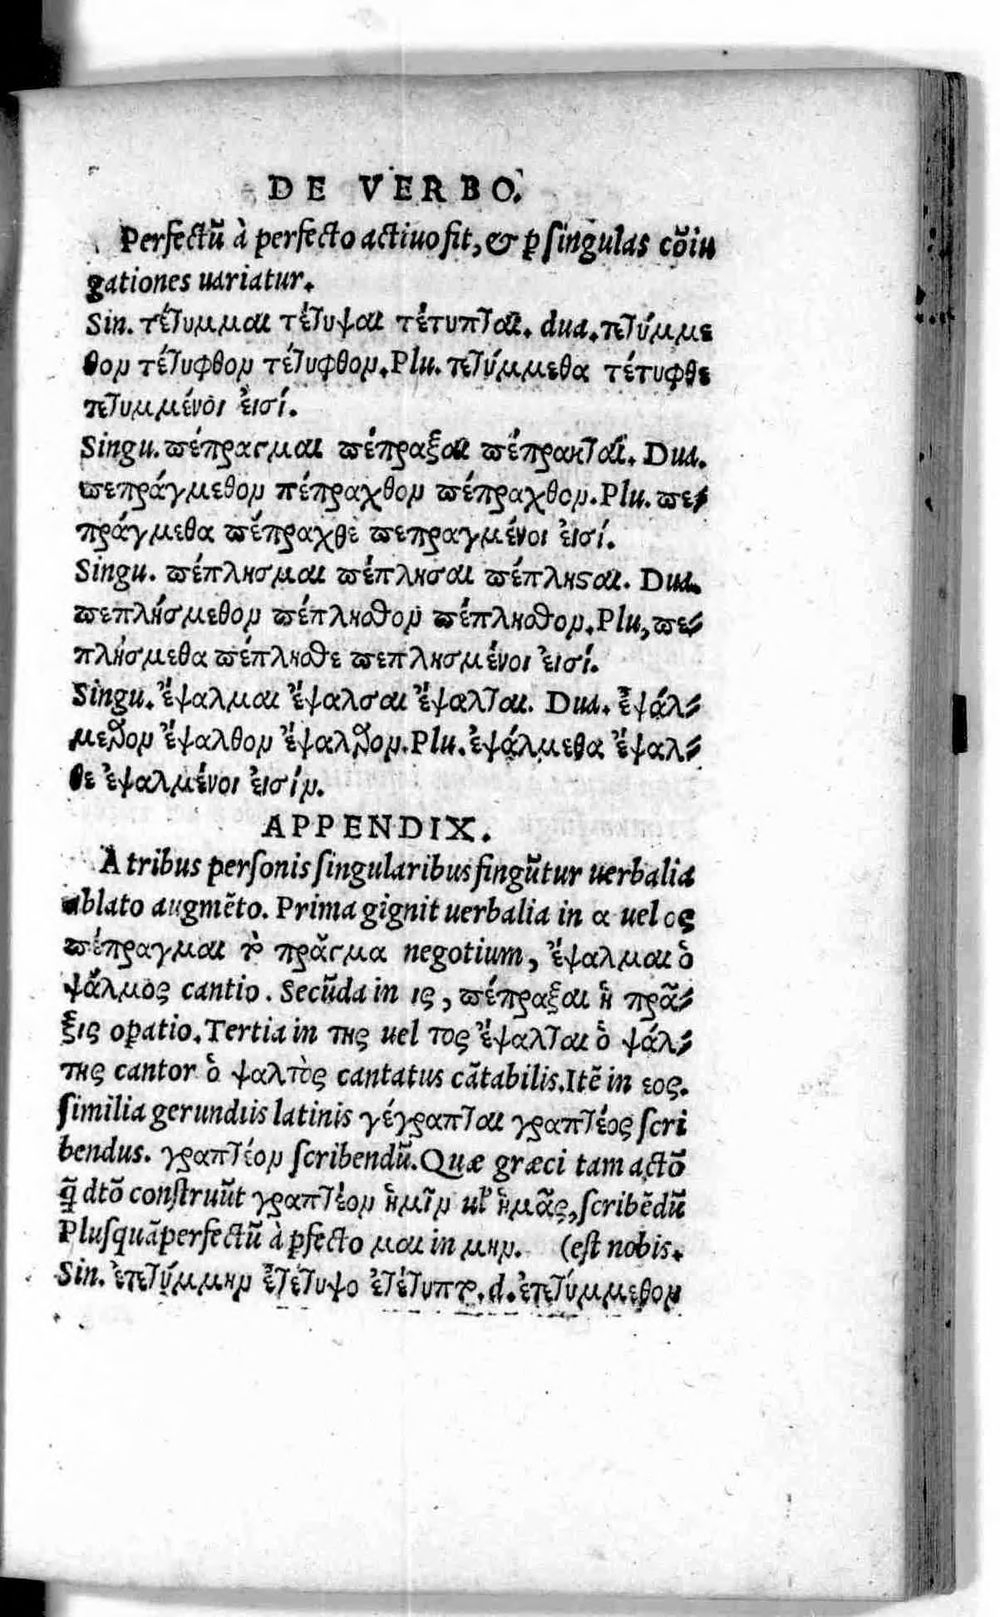 DE VERBO.
Perfectũ à perfecto actiuo fit, & p̱ singulas cõiu
gationes uariatur.
Sin. τέτυμμαι τέτυψαι τέτυπται. dua. τετύμμε
θον τέτυφθον τέτυφθον. Plu. τετύμμεθα τέτυφθε
τετυμμένοι εἰσί.
Singu. πέπραγμαι πέπραξαι πέπρακται. Dua.
πεπράγμεθον πέπραχθον πέπραχθον. Plu. πε-
πράγμεθα πέπραχθε πεπραγμένοι εἰσί.
Singu. πέπλησμαι πέπλησαι πέπληϛαι. Dua.
πεπλήσμεθον πέπλησθον πέπλησθον. Plu, πε-
πλήσμεθα πέπλησθε πεπλησμένοι εἰσί.
Singu. ἔψαλμαι ἔψαλσαι ἔψαλται. Dua. ἐψάλ-
μεθον ἔψαλθον ἔψαλθον. Plu. ἐψάλμεθα ἔψαλ-
θε ἐψαλμένοι εἰσίν.
APPENDIX.
A tribus personis singularibus fingũtur uerbalia
ablato augmẽto. Prima gignit uerbalia in α uel ος
πέπραγμαι τὸ πρᾶγμα negotium, ἔψαλμαι ὁ
ψάλμὸς cantio. Secũda in ις, πέπραξαι ἡ πρᾶ-
ξις op̱atio. Tertia in της uel τος ἔψαλται ὁ ψάλ-
της cantor ὁ ψαλτὸς cantatus cãtabilis. Itẽ in εος.
similia gerundiis latinis γέγραπται γραπτέος scri
bendus. γραπτέον scribendũ. Quæ græci tam actõ
q̃ dtõ construũt γραπτέον ἡμῖν ul̉ ἡμᾶς, scribẽdũ
Plusquãperfectũ à p̱fecto μαι in μην. (est nobis.
Sin. ἐτετύμμην ἐτέτυψο ἐτέτυπτο. d. ἐτετύμμεθον